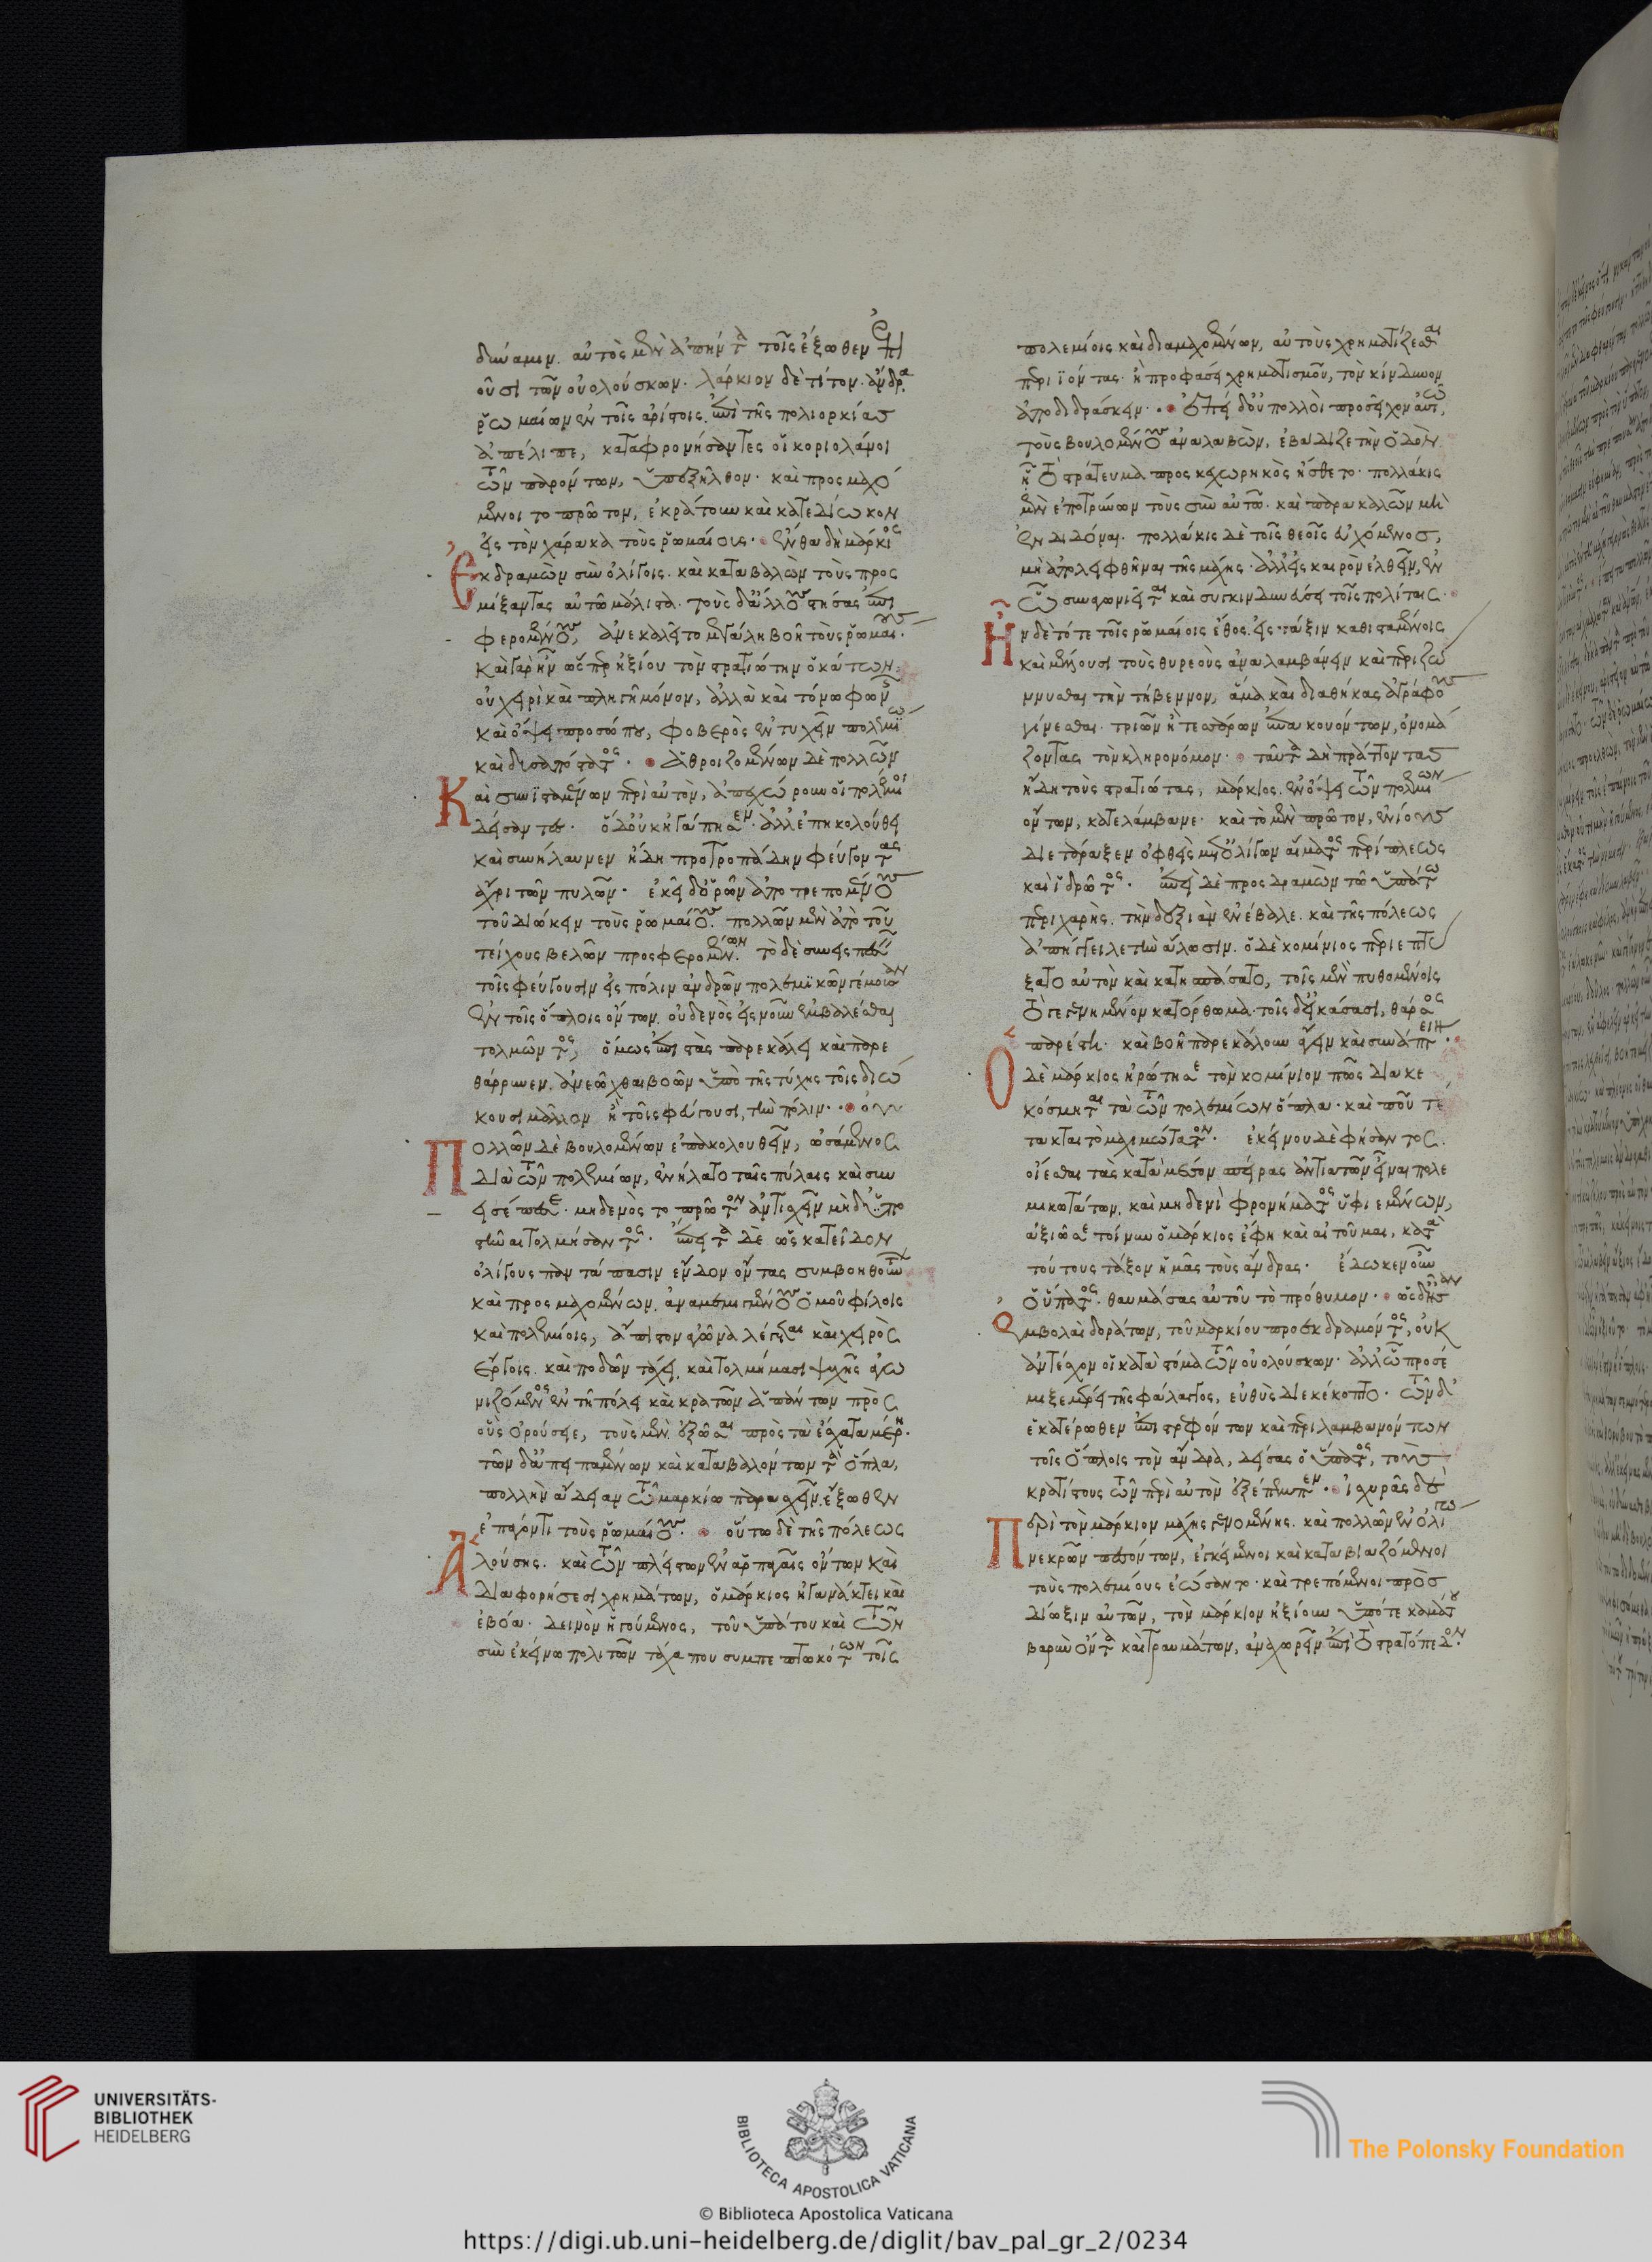 δύναμιν. αὐτὸς μὲν ἀπήντα τοῖς ἔξωθεν ἐπι
οῦσι τῶν οὐολούσκων. λάρκιον δὲ τίτον. ἄνδρα
ῥωμαίων ἐν τοῖς ἀρίστοις. ἐπὶ τῆς πολιορκίας
ἀπέλιπε, καταφρονήσαντες οἱ κοριολάνοι
τῶν παρόντων, ὑπεξῆλθον. καὶ προσμαχό
μενοι τὸ πρῶτον, ἐκράτουν καὶ κατεδίωκον
εἰς τὸν χάρακα τοὺς ῥωμαίους. ἔνθα δὴ μάρκιος
Ἐκδραμὼν σὺν ὀλίγοις. καὶ καταβαλὼν τοὺς προς
μίξαντας αὐτῶ μάλιστα. τοὺς δ᾽ἄλλους στήσας ἐπι
φερομένους, ἀνεκαλεῖτο μεγάλη βοῆ τοὺς ῥωμαίους.
καὶ γὰρ ἦν ὥσπερ ἠξίου τὸν στρατιώτην ὁ κάτων.
οὐ χειρὶ καὶ πληγῆ μόνον, ἀλλὰ καὶ τόνω φωνῆς
καὶ ὄψει προσώπου, φοβερὸς ἐντυχεῖν πολεμίω
καὶ δυσυπόστατος. ἀθροιζομένων δὲ πολλῶν
Καὶ συνϊσταμένων περὶ αὐτὸν, ἀπεχώρουν οἱ πολέμιοι
δείσαντες. ὁ δ᾽οὐκ ἠγάπησεν. ἀλλ᾽ἐπηκολούθει
καὶ συνήλαυνεν ἤδη προτροπάδην φεύγοντας
ἄχρι τῶν πυλῶν. ἐκεῖ δ᾽ὁρῶν ἀποτρεπομένους
τοῦ διώκειν τοὺς ῥωμαίους. πολλῶν μὲν ἀπὸ τοῦ
τείχους βελῶν προσφερομένων. τὸ δὲ συνεισπεσεῖν
τοῖς φεύγουσιν εἰς πόλιν ἀνδρῶν πολεμϊκῶν γέμουσαν
ἐν τοῖς ὅπλοις ὄντων. οὐδενὸς εἰς νοῦν ἐμβαλέσθαι
τολμῶντος, ὅμως ἐπιστὰς παρεκάλει καὶ παρε
θάρρυνεν. ἀνεῶχθαι βοῶν ὑπὸ τῆς τύχης τοῖς διώ
κουσι μᾶλλον ἢ τοῖς φεύγουσι, τὴν πόλιν. οὐ
Πολλῶν δὲ βουλομένων ἐπακολουθεῖν, ὠσάμενος
διὰ τῶν πολεμίων, ἐνήλατο ταῖς πύλαις καὶ συν
εισέπεσε. μηδενὸς τὸ πρῶτον ἀντισχεῖν μηδ᾽ ὑπο
στῆναι τολμήσαντος. ἔπειτα δὲ ὡς κατεῖδον
ὀλίγους παντάπασιν ἔνδον ὄντας συμβοηθούντων
καὶ προσμαχομένων. ἀναμεμιγμένους ὁμοῦ φίλοις
καὶ πολεμίοις, ἄπιστον ἀγῶνα λέγεται καὶ χειρὸς
ἔργοις. καὶ ποδῶν τάχει, καὶ τολμήμασι ψυχῆς ἀγω
νιζόμενος ἐν τῆ πόλει καὶ κρατῶν ἁπάντων πρὸς
οὓς ὀρούσειε, τοὺς μὲν ἐξῶσαι πρὸς τὰ ἔσχατα μέρη.
τῶν δ᾽ἀπειπαμένων καὶ καταβαλόντων τὰ ὅπλα,
πολλὴν ἄδειαν τῶ μαρκίω παρασχεῖν ἔξωθεν
ἐπάγοντι τοὺς ῥωμαίους. οὕτω δὲ τῆς πόλεως
Ἁλούσης. καὶ τῶν πλείστων ἐν ἁρπαγαῖς ὄντων καὶ
διαφορήσεσι χρημάτων, ὁ μάρκιος ἠγανάκτει καὶ
ἐβόα. δεινὸν ἡγούμενος, τοῦ ὑπάτου καὶ τῶν
σὺν ἐκείνω πολιτῶν τάχα που συμπεπτωκότων τοῖς
πολεμίοις καὶ διαμαχομένων, αὐτοὺς χρηματίζεσθαι
περιϊόντας. ἢ προφάσει χρηματισμοῦ, τὸν κίνδυνον
ἀποδιδράσκειν. ἐπεὶ δ᾽οὐ πολλοὶ προσεῖχον αὐτῶ,
τοὺς βουλομένους ἀναλαβὼν, ἐβάδιζε τὴν ὁδὸν
ἧ τὸ στράτευμα προσκεχωρηκὸς ἤσθετο. πολλάκις
μὲν ἐποτρύνων τοὺς σὺν αὐτῶ. καὶ παρακαλῶν μὴ
ἐνδιδόναι. πολλάκις δὲ τοῖς θεοῖς εὐχόμενος,
μὴ ἀπολειφθῆναι τῆς μάχης. ἀλλ᾽εἰς καιρὸν ἐλθεῖν, ἐν
ὧ συναγωνιεῖται καὶ συγκινδυνεύσει τοῖς πολίταις.
Ἦν δὲ τότε τοῖς ῥωμαίοις ἔθος. εἰς τάξιν καθισταμένοις
καὶ μέλλουσι τοὺς θυρεοὺς ἀναλαμβάνειν καὶ περιζω
ννυσθαι τὴν τήβεννον, ἅμα καὶ διαθήκας ἀγράφους
γίνεσθαι. τριῶν ἢ τεσσάρων ἐπακουόντων, ὀνομά
ζοντας τὸν κληρονόμον. ταῦτα δὴ πράττοντας
ἤδη τοὺς στρατιώτας, μάρκιος. ἐν ὄψει τῶν πολεμίων
ὄντων, κατελάμβανε. καὶ τὸ μὲν πρῶτον, ἐνίους
διετάραξεν ὀφθεὶς μετ᾽ὀλίγων αἵματος περίπλεως
καὶ ἱδρῶτος. ἐπεὶ δὲ προσδραμὼν τῶ ὑπάτω
περιχαρὴς. τὴν δεξιὰν ἐνέβαλε. καὶ τῆς πόλεως
ἀπήγγειλε τὴν ἅλωσιν. ὁ δὲ κομίνιος περιεπτύ
ξατο αὐτὸν καὶ κατησπάσατο, τοῖς μὲν πυθομένοις
τὸ γεγενημένον κατόρθωμα. τοῖς δ᾽εἰκάσασι, θάρσος
παρέστη. καὶ βοῆ παρεκάλουν ἄγειν καὶ συνάπτειν.
Ὁ δὲ μάρκιος ἠρώτησε τὸν κομίνιον πῶς διακε
κόσμηται τὰ τῶν πολεμίων ὅπλα. καὶ ποῦ τέ
τακται τὸ μαχιμώτατον. ἐκείνου δὲ φήσαντος.
οἴεσθαι τὰς κατὰ μέσον σπείρας ἀντιατῶν εἶναι πολε
μικωτάτων, καὶ μηδενὶ φρονήματος ὑφιεμένων,
ἀξιῶ σε τοίνυν ὁ μάρκιος ἔφη καὶ αἰτοῦμαι, κατὰ
τούτους τάξον ἡμᾶς τοὺς ἄνδρας. ἔδωκεν οὖν
ὁ ὕπατος. θαυμάσας αὐτοῦ τὸ πρόθυμον. ὡς δ᾽ἦσαν
Ἐμβολαὶ δοράτων, τοῦ μαρκίου προεκδραμόντος, οὐκ
ἀντέσχον οἱ κατὰ στόμα τῶν οὐολούσκων. ἀλλ᾽ὧ προσέ
μιξε μέρει τῆς φάλαγγος, εὐθὺς διεκέκοπτο. τῶν δ᾽
ἑκατέρωθεν ἐπιστρεφόντων καὶ περιλαμβανόντων
τοῖς ὅπλοις τὸν ἄνδρα, δείσας ὁ ὕπατος, τοὺς
κρατίστους τῶν περὶ αὐτὸν ἐξέπεμπεν. ἰσχυρᾶς δὲ
Περὶ τὸν μάρκιον μάχης γενομένης. καὶ πολλῶν ἐν ὀλίγω
νεκρῶν πεσόντων, ἐγκείμενοι καὶ καταβιαζόμενοι
τοὺς πολεμίους ἐώσαντο. καὶ τρεπόμενοι πρὸς
δίωξιν αὐτῶν, τὸν μάρκιον ἠξίουν ὑπό τε καμάτου
βαρὺν ὄντα καὶ τραυμάτων, ἀναχωρεῖν ἐπὶ τὸ στρατόπεδον.
UNIVERSITÄTS-
BIBLIOTHEK
HEIDELBERG
BIBLIOTECA APOSTOLICA VATICANA
The Polonsky Foundation
© Biblioteca Apostolica Vaticana
https://digi.ub.uni-heidelberg.de/diglit/bav_pal_gr_2/0234